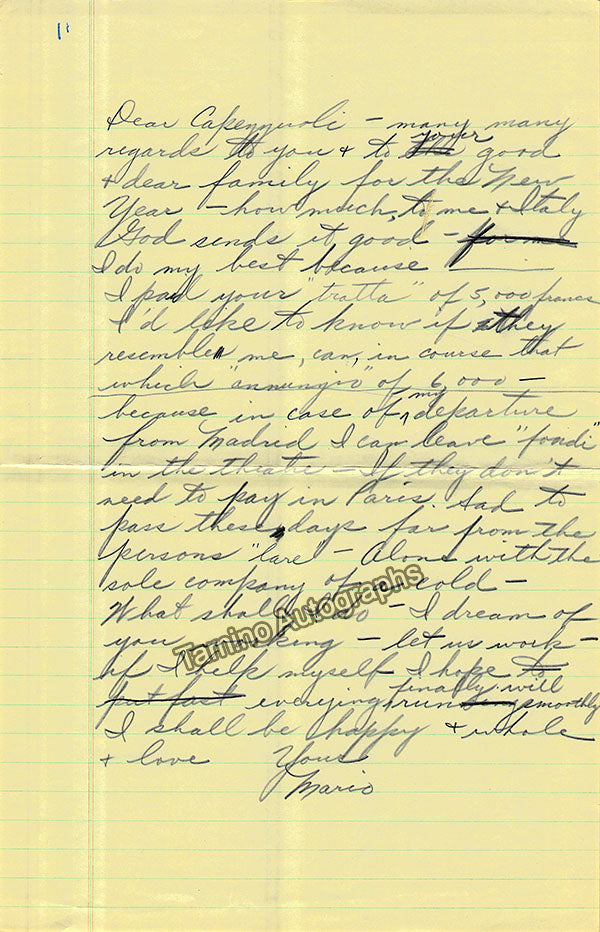 1"
Dear Capezzuoli - many many
your
regards to you & to the good
& dear family for the New
Year - how much, to me & Italy
God sends it good - for me
I do my best because
I paid your "tratta" of 5,000 francs
I'd like to know if they
resemble me, can, in course that
which "annunzio" of 6,000 -
because in case of my departure
from Madrid I can leave "fondi"
in the theatre - If they don't
need to pay in Paris. Sad to
pass these days far from the
persons "care" - Alone with the
sole company of a cold -
What shall I do - I dream of
you working - let us work -
if I help myself I hope to
put fast everying finally will
run smoothly
I shall be happy & whole
& love Yours
Mario
Tamino Autographs